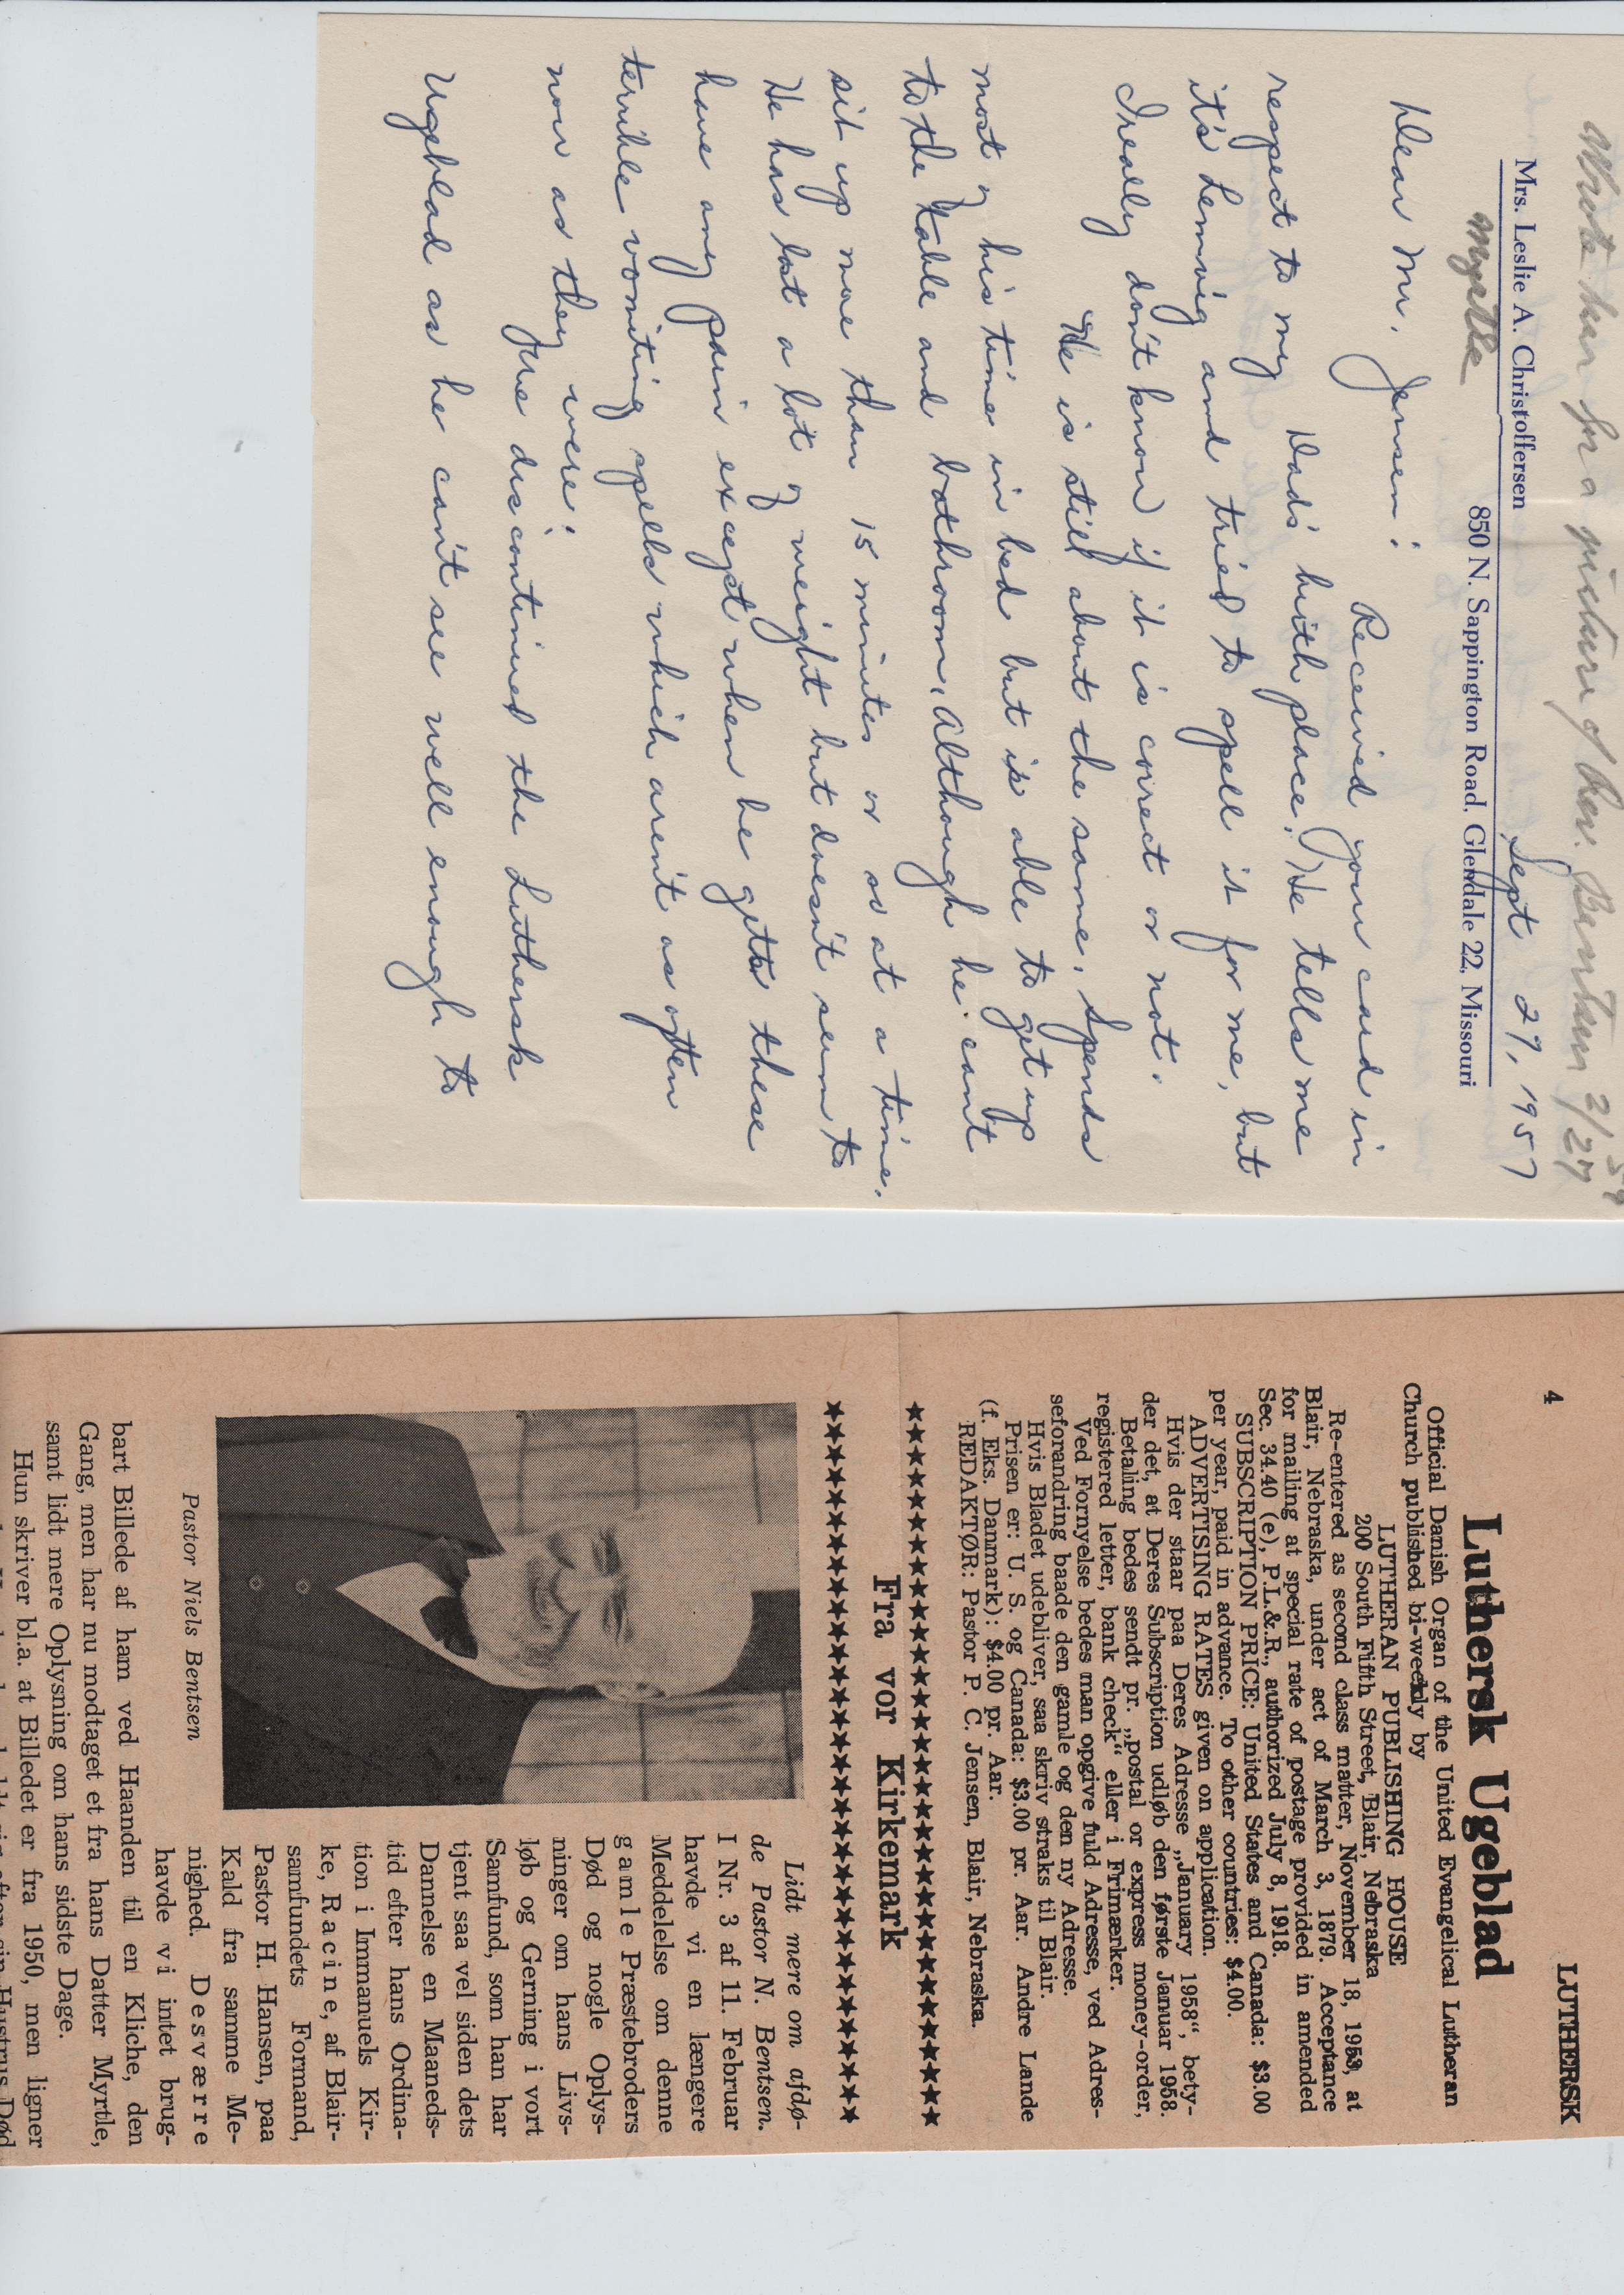 Wrote her for a picture of Rev. Bentsen 2/27
59
Mrs. Leslie A. Christoffersen
850 N. Sappington Road, Glendale 22, Missouri
Myrtle
Sept 27, 1957
Dear Mr. Jensen:
Received your card in
respect to my Dad's birth place. He tells me
it's Lemvig and tried to spell it for me, but
I really don't know if it is correct or not.
He is still about the same. Spends
most of his time in bed but is able to get up
to the table and bathroom. Although he can't
sit up more than 15 minutes or so at a time.
He has lost a lot of weight but doesn't seem to
have any pain except when he gets these
terrible vomiting spells which aren't as often
now as they were.
We discontinued the Luthersk
Ugeblad as he can't see well enough to
4
LUTHERSK
Luthersk Ugeblad
Official Danish Organ of the United Evangelical Lutheran
Church published bi-weekly by
LUTHERAN PUBLISHING HOUSE
200 South Fifth Street, Blair, Nebraska
Re-entered as second class matter, November 18, 1953, at
Blair, Nebraska, under act of March 3, 1879. Acceptance
for mailing at special rate of postage provided in amended
Sec. 34.40 (e), P.L.&.R., authorized July 8, 1918.
SUBSCRIPTION PRICE: United States and Canada: $3.00
per year, paid in advance. To other countries: $4.00.
ADVERTISING RATES given on application.
Hvis der staar paa Deres Adresse „January 1958“, bety-
der det, at Deres Subscription udløb den første Januar 1958.
Betaling bedes sendt pr. „postal or express money-order,
registered letter, bank check“ eller i Frimærker.
Ved Fornyelse bedes man opgive fuld Adresse, ved Adres-
seforandring baade den gamle og den ny Adresse.
Hvis Bladet udebliver, saa skriv straks til Blair.
Prisen er: U. S. og Canada: $3.00 pr. Aar. Andre Lande
(f. Eks. Danmark): $4.00 pr. Aar.
REDAKTØR: Pastor P. C. Jensen, Blair, Nebraska.
Fra vor Kirkemark
Pastor Niels Bentsen
Lidt mere om afdø-
de Pastor N. Bentsen.
I Nr. 3 af 11. Februar
havde vi en længere
Meddelelse om denne
gamle Præstebroders
Død og nogle Oplys-
ninger om hans Livs-
løb og Gerning i vort
Samfund, som han har
tjent saa vel siden dets
Dannelse en Maaneds-
tid efter hans Ordina-
tion i Immanuels Kir-
ke, Racine, af Blair-
samfundets Formand,
Pastor H. Hansen, paa
Kald fra samme Me-
nighed. Desværre
havde vi intet brug-
bart Billede af ham ved Haanden til en Kliche, den
Gang, men har nu modtaget et fra hans Datter Myrtle,
samt lidt mere Oplysning om hans sidste Dage.
Hun skriver bl.a. at Billedet er fra 1950, men ligner
efter sin Hustrus Død